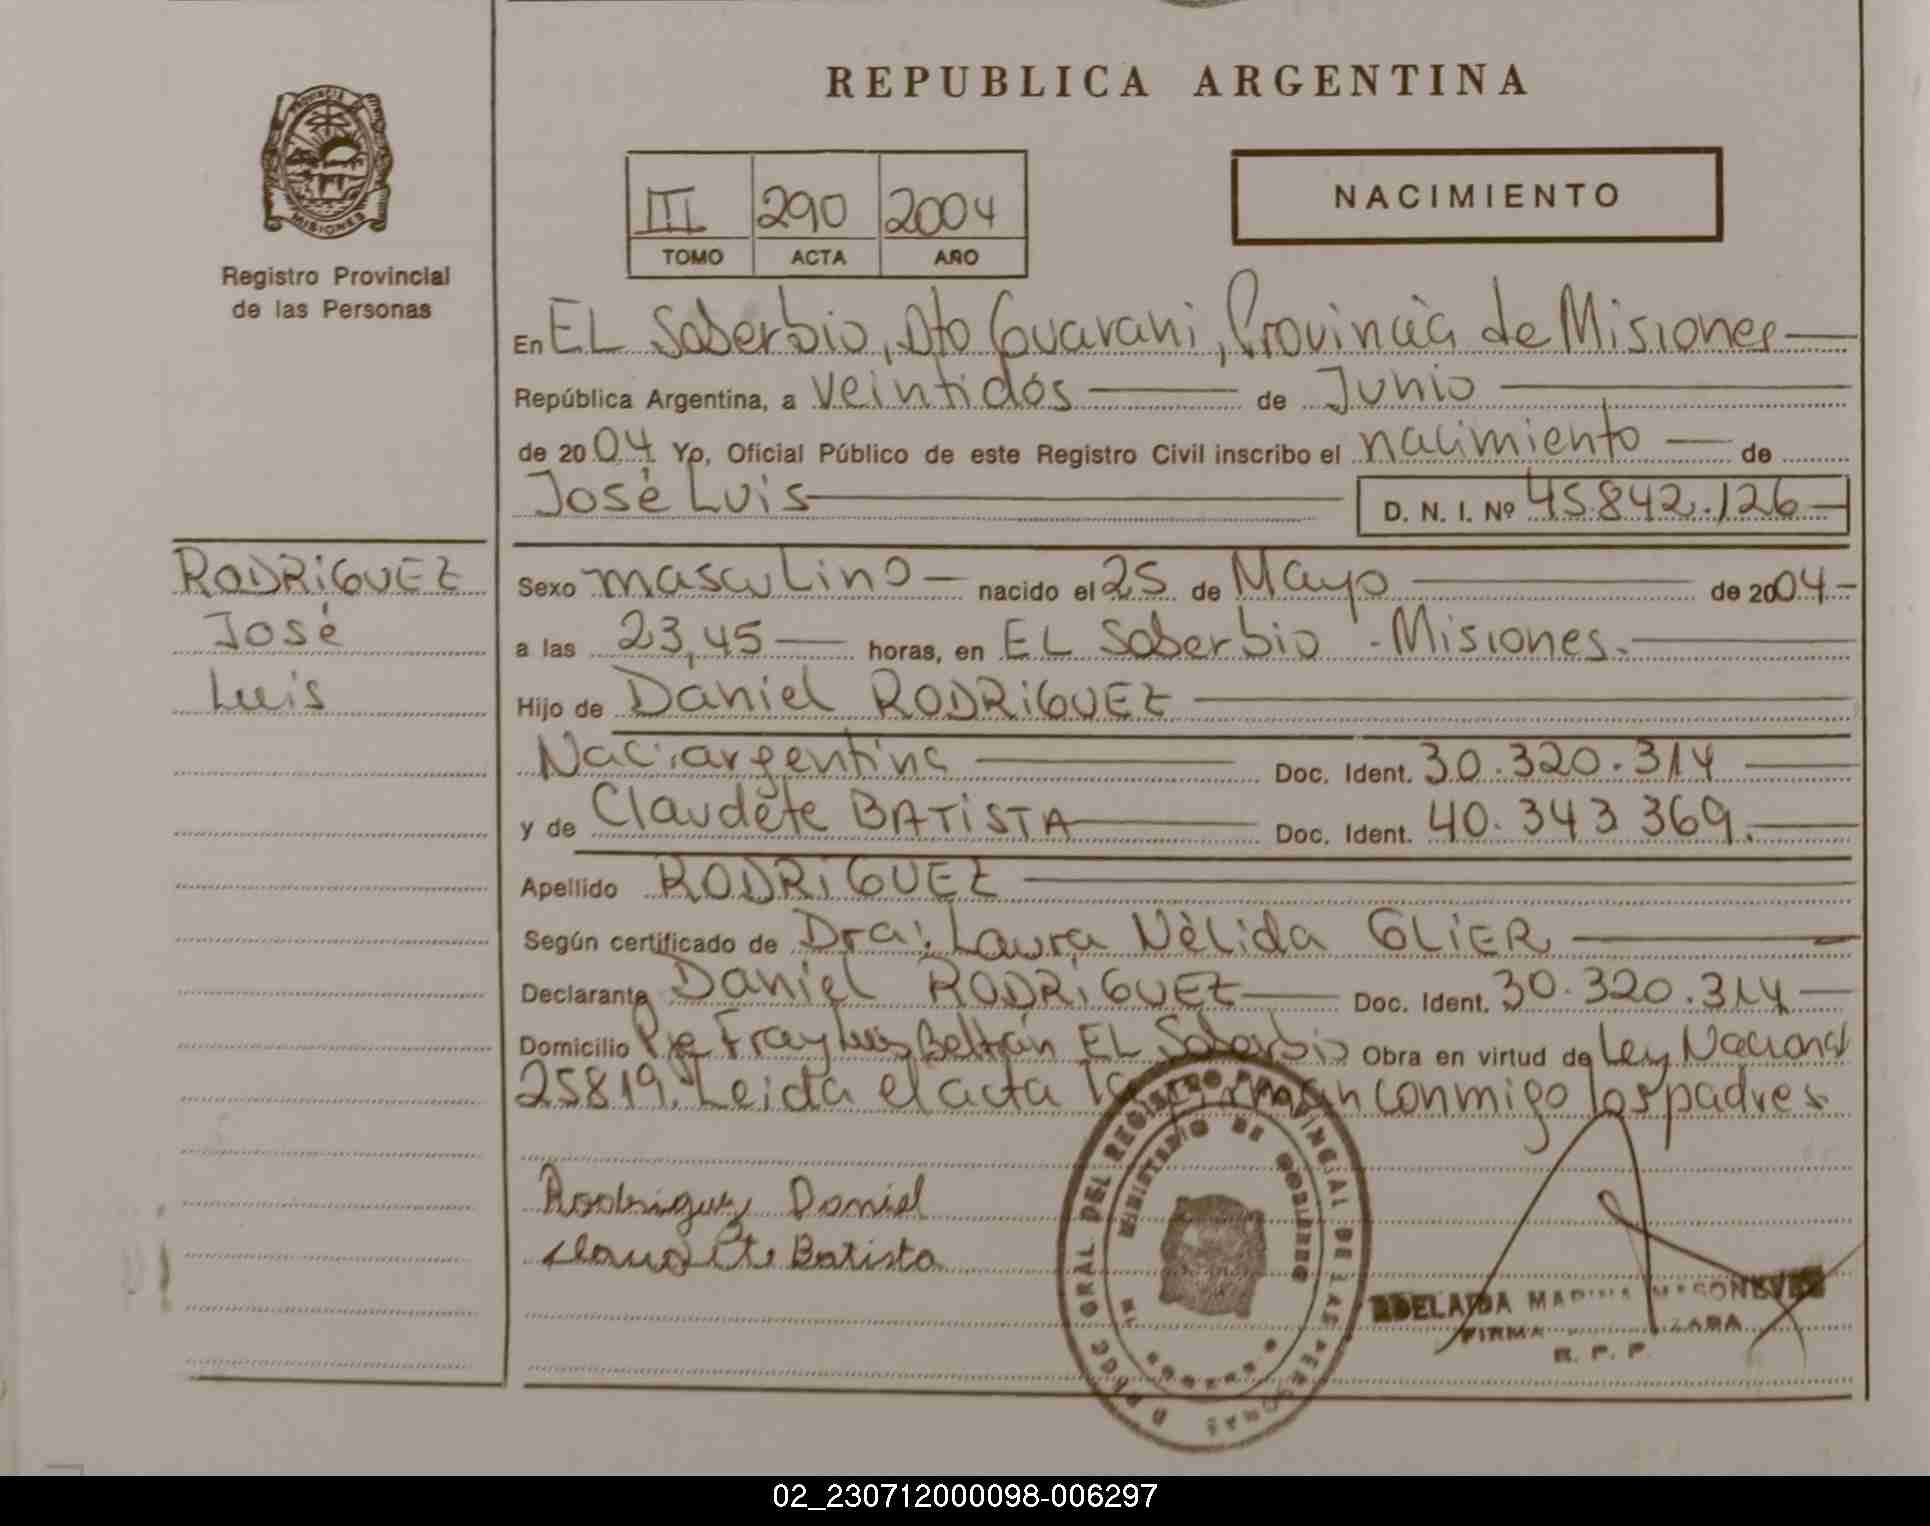 REPUBLICA ARGENTINA
PROVINCIA
MISIONES
Registro Provincial
de las Personas
III 290 2004
TOMO ACTA AÑO
NACIMIENTO
En EL Soberbio, Dto Guarani, Provincia de Misiones
República Argentina, a veintidós de Junio
de 2004 Yo, Oficial Público de este Registro Civil inscribo el nacimiento de
José Luis D. N. I. Nº 45.842.126
RODRiGUEZ
José
Luis
Sexo masculino nacido el 25 de Mayo de 2004
a las 23,45 horas, en EL Soberbio - Misiones.
Hijo de Daniel RODRiGUEZ
Nac: argentina Doc. Ident. 30.320.314
y de Claudete BATiSTA Doc. Ident. 40.343 369.
Apellido RODRiGUEZ
Según certificado de Dra: Laura Nèlida GLiER
Declarante Daniel RODRiGUEZ Doc. Ident. 30.320.314
Domicilio Pje Fray Luis Beltrán EL Soberbio Obra en virtud de Ley Nacional
25819. Leida el acta la firman conmigo los padres
Rodriguez Daniel
Claudete Batista
GRAL DEL REGISTRO PROVINCIAL DE LAS PERSONAS
MINISTERIO DE GOBIERNO
ADELAIDA MARINA
FIRMA
R. P. P.
02_230712000098-006297